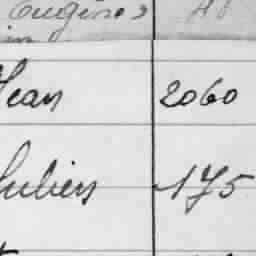 Eugène
Jean 2060
Julien 175